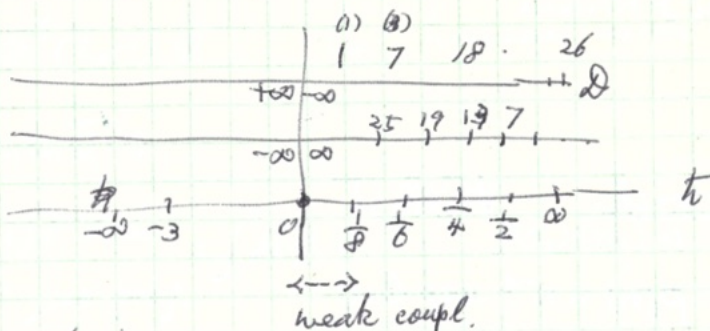 (1) (3)
1 7 18 . 26
+∞ -∞ D
25 19 13 7
-∞ ∞
-∞ -3 0 1/8 1/6 1/4 1/2 ∞ ħ
weak coupl.